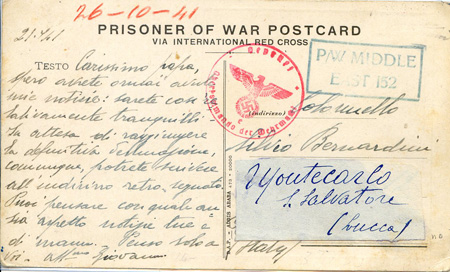 26-10-41
PRISONER OF WAR POSTCARD
VIA INTERNATIONAL RED CROSS
21.
TESTO Carissimo papà,
spero avrete ormai avuto
mie notizie: sarete così re-
lativamente tranquilli.
In attesa di raggiungere
la definitiva destinazione,
comunque, potrete scrivere
all'indirizzo retro-segnato.
Puoi pensare con quale an-
sia aspetto notizie tue e
di mamma. Penso solo a
Voi. Giovanni
Geöffnet
Oberkommando der Wehrmacht
P/W MIDDLE
EAST 152
(Indirizzo)
Colonnello
Silvio Bernardini
Montecarlo
S. Salvatore
(Lucca)
Italy
ADDIS ABABA